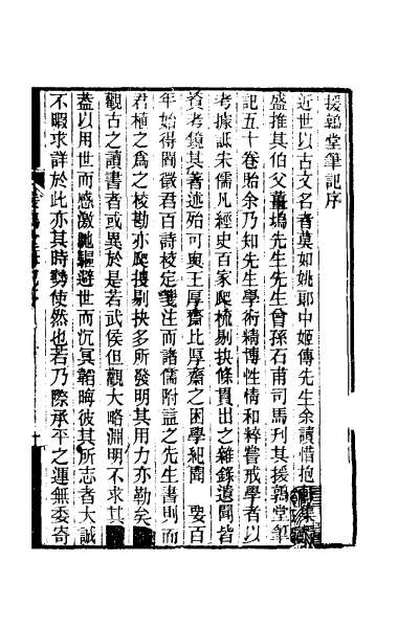 援鶉堂筆記序
近世以古文名者莫如姚郎中姬傳先生余讀惜抱集
盛推其伯父薑塢先生先生曾孫石甫司馬刋其援鶉堂筆
記五十卷貽余乃知先生學術精博性情和粹嘗戒學者以
考據詆宋儒凡經史百家爬梳剔抉條貫出之雜錄遺聞皆
資考鏡其著述殆可與王厚齋比厚齋之困學紀聞 要百
年始得閻徵君百詩校定箋注而諸儒附益之先生書則而
君植之為之校勘亦爬搜剔抉多所發明其用力亦勤矣
觀古之讀書者或異於是若武侯但觀大略淵明不求其
蓋以用世而感激馳驅避世而沉冥韜晦彼其所志者大誠
不暇求詳於此亦其時勢使然也若乃際承平之運無委寄